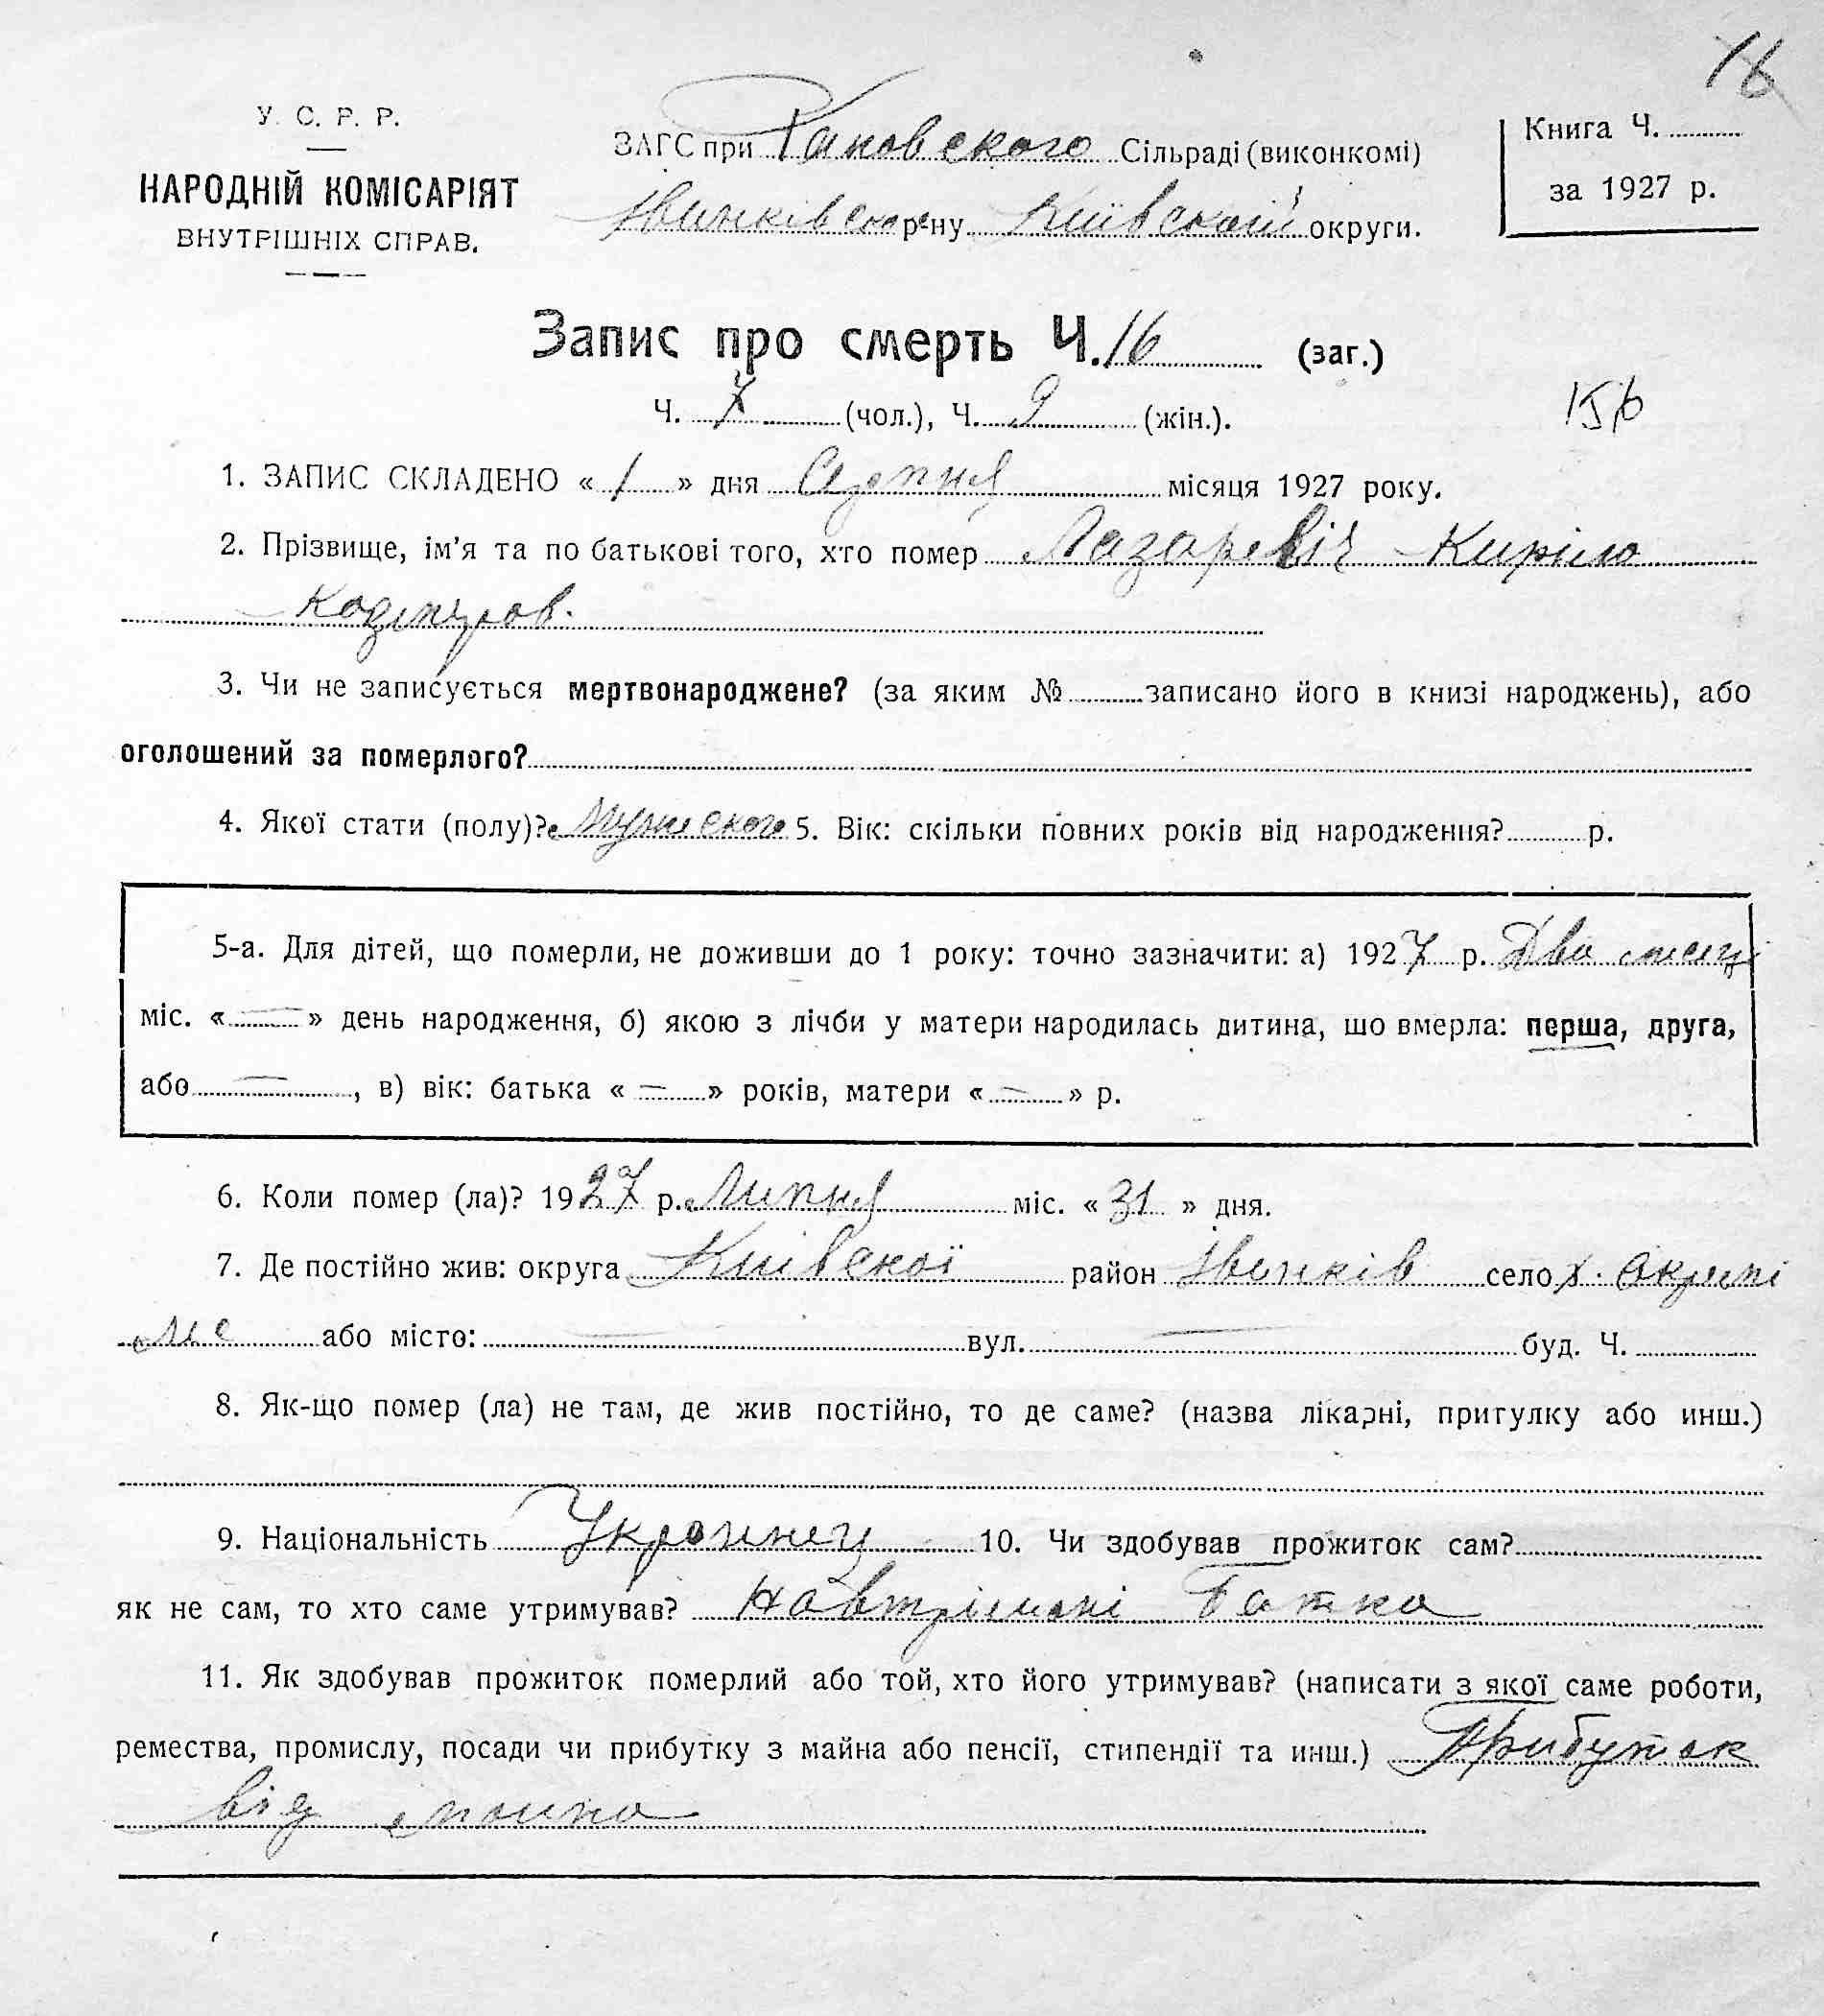 16
У. С. Р. Р.
НАРОДНІЙ КОМІСАРІЯТ
ВНУТРІШНІХ СПРАВ.
ЗАГС при Рановского Сільраді (виконкомі)
р-ну Київської округи.
Книга Ч.
за 1927 р.
Запис про смерть Ч. 16 (заг.)
Ч. 7 (чол.), Ч. 9 (жін.).
1. ЗАПИС СКЛАДЕНО « 1 » дня Серпня місяця 1927 року.
2. Прізвище, ім'я та по батькові того, хто помер Лазаревіч Киріло
3. Чи не записується мертвонароджене? (за яким № записано його в книзі народжень), або
оголошений за померлого?
4. Якої стати (полу)? Мужеского 5. Вік: скільки повних років від народження? р.
5-а. Для дітей, що померли, не доживши до 1 року: точно зазначити: а) 1927 р. Два месяці
міс. « — » день народження, б) якою з лічби у матери народилась дитина, шо вмерла: перша, друга,
або —, в) вік: батька « — » років, матери « — » р.
6. Коли помер (ла)? 1927 р. Липня міс. « 31 » дня.
7. Де постійно жив: округа Київскої район Іванків село х.
або місто: — вул. — буд. Ч.
8. Як-що помер (ла) не там, де жив постійно, то де саме? (назва лікарні, притулку або инш.)
9. Національність Украинец 10. Чи здобував прожиток сам?
як не сам, то хто саме утримував? на втрімані Батка
11. Як здобував прожиток померлий або той, хто його утримував? (написати з якої саме роботи,
ремества, промислу, посади чи прибутку з майна або пенсії, стипендії та инш.) Прибуток
від маина